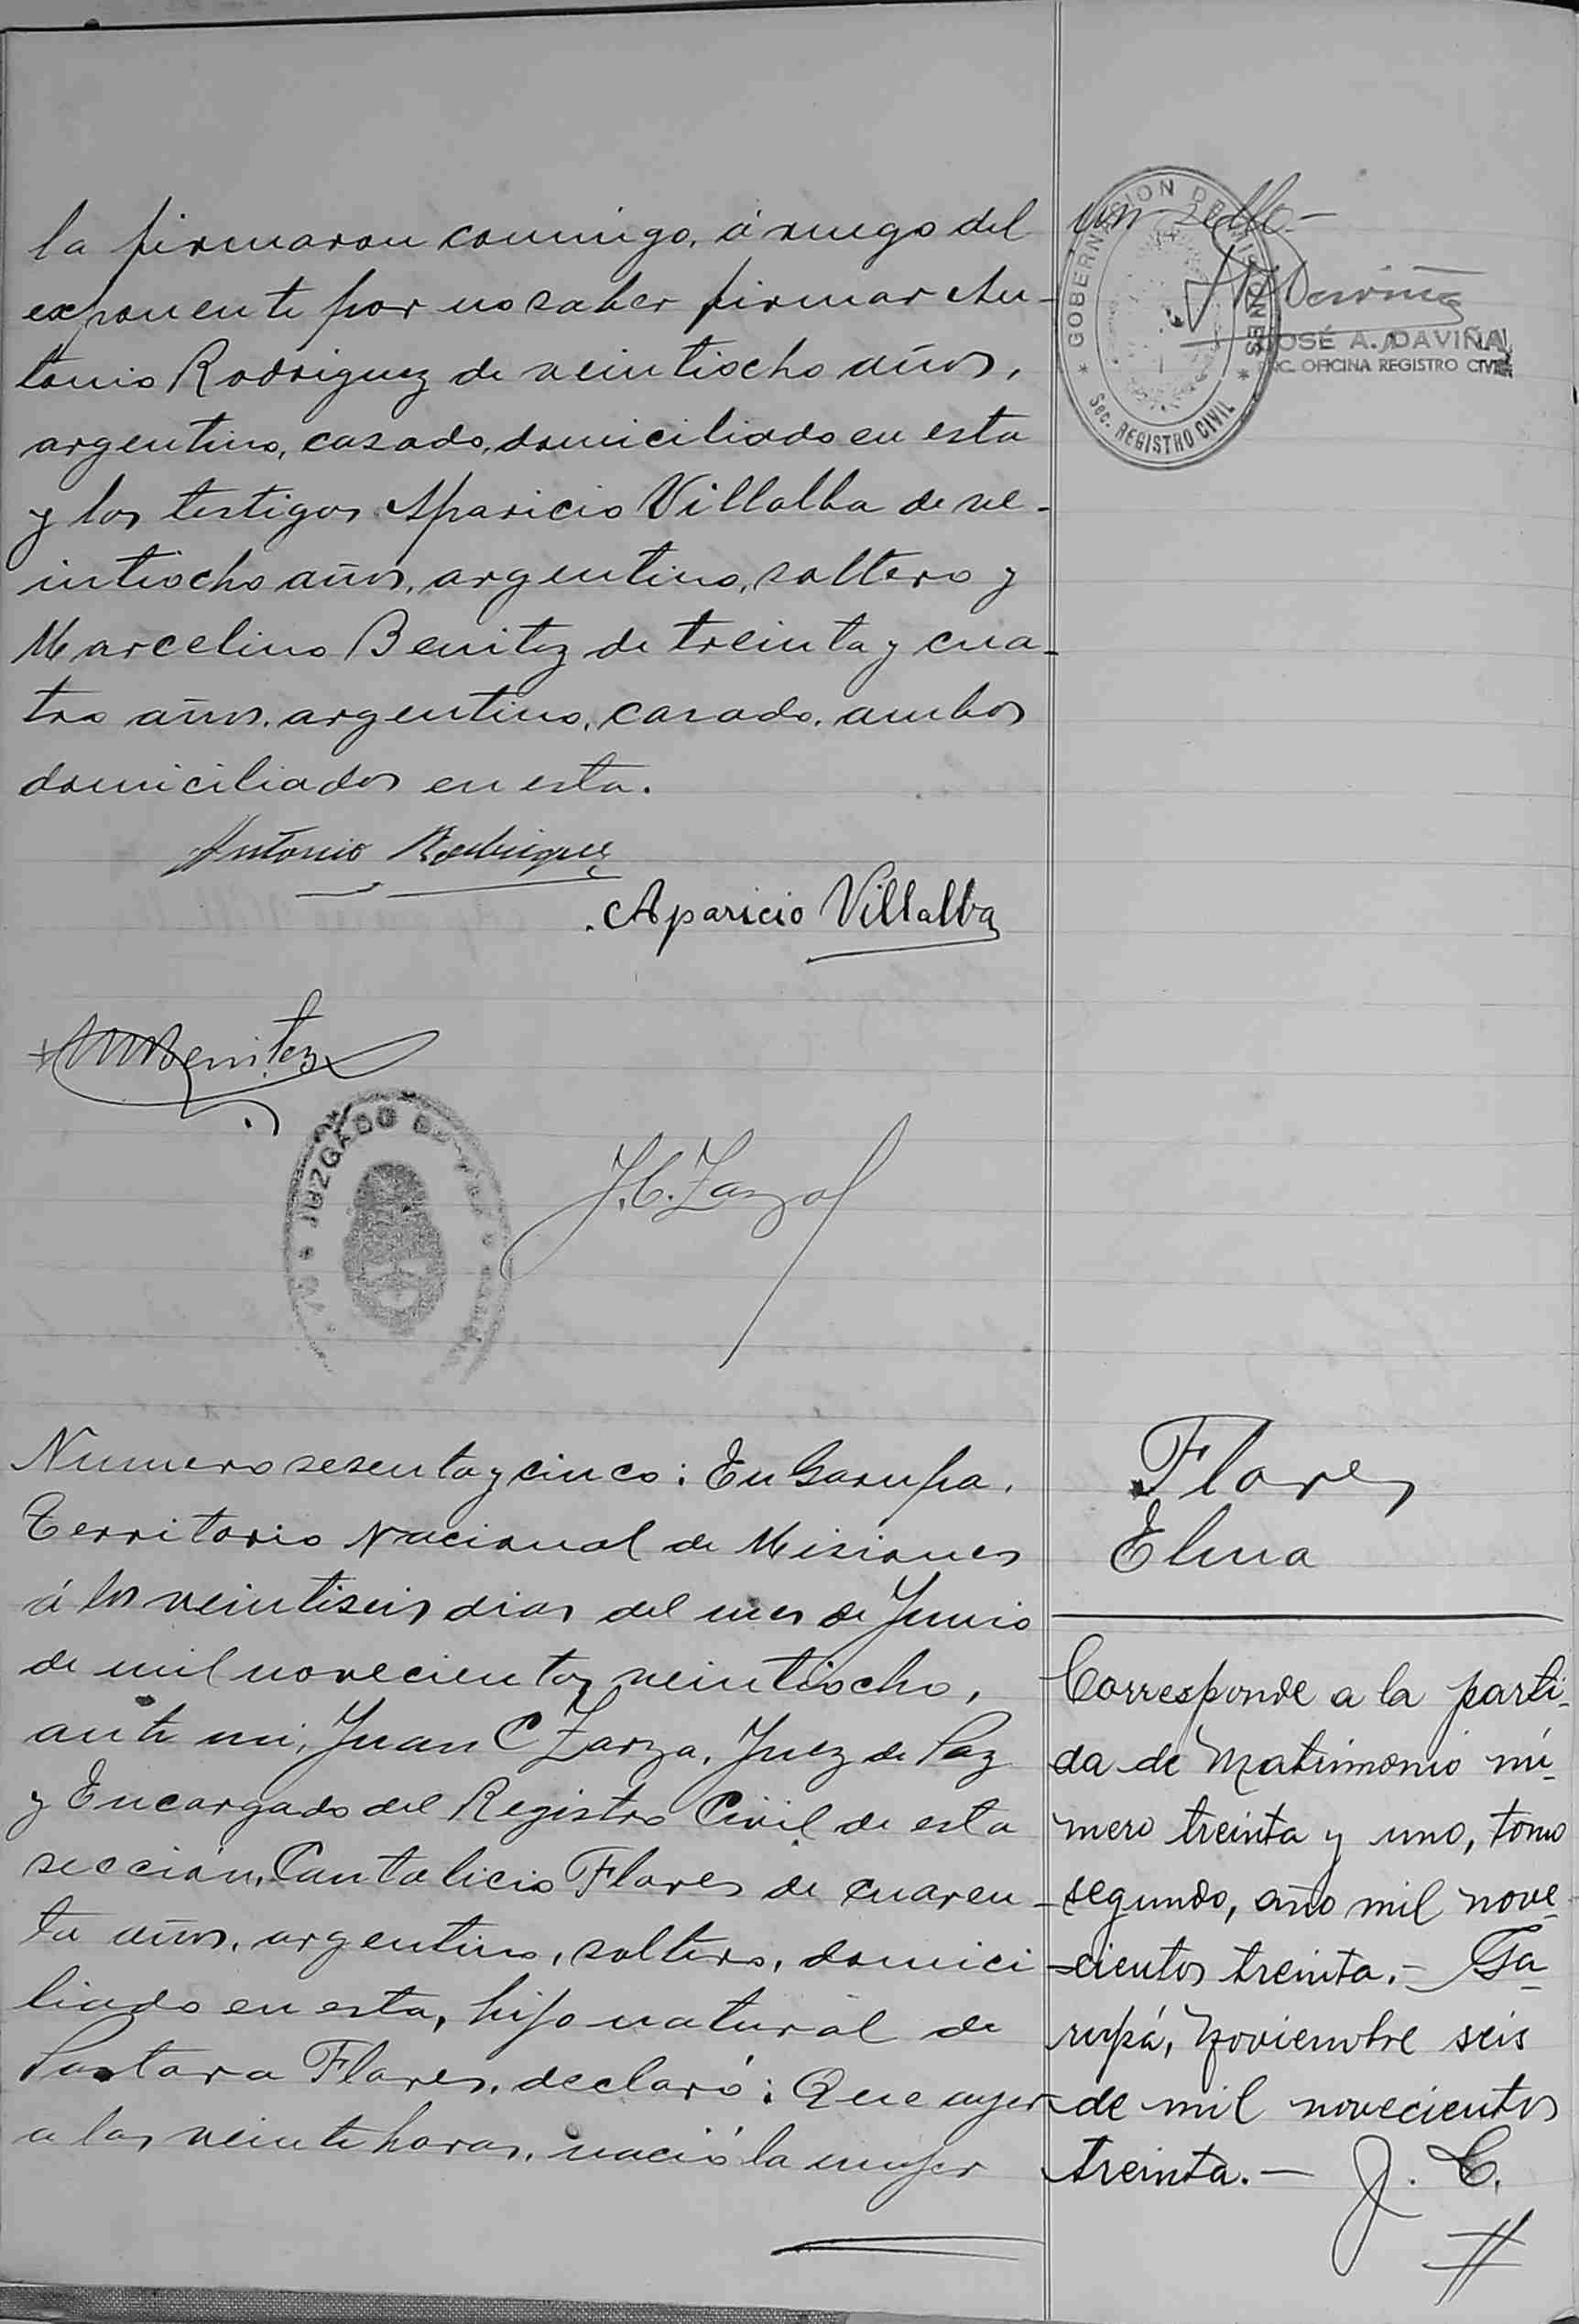 la firmaron conmigo, á ruego del
exponente por no saber firmar An-
tonio Rodriguez de veintiocho años,
argentino, casado, domiciliado en esta
y los testigos Aparicio Villalba de ve-
intiocho años, argentino, soltero y
Marcelino Benitez de treinta y cua-
tro años, argentino, casado, ambos
domiciliados en esta.
Antonio Rodriguez
Aparicio Villalba
M Benitez
JUZGADO DE
J. C. Zarza
GOBERNACION DE MISIONES
Sec. REGISTRO CIVIL
un sello-
JOSÉ A. DAVIÑA
OFICINA REGISTRO CIVIL
Numero sesenta y cinco: En Garupa,
Territorio Nacional de Misiones
á los veintiseis dias del mes de Junio
de mil novecientos veintiocho,
ante mi, Juan C Zarza, Juez de Paz
y Encargado del Registro Civil de esta
sección, Cantalicio Flores de cuaren-
ta años, argentino, soltero, domici
liado en esta, hijo natural de
Pastora Flores, declaró: Que ayer
a las veinte horas, nació la mujer
Flores
Elma
Corresponde a la parti-
da de Matrimonio nú-
mero treinta y uno, tomo
segundo, año mil nove-
cientos treinta.- Ga-
rupá, Noviembre seis
de mil novecientos
treinta.- J. C.